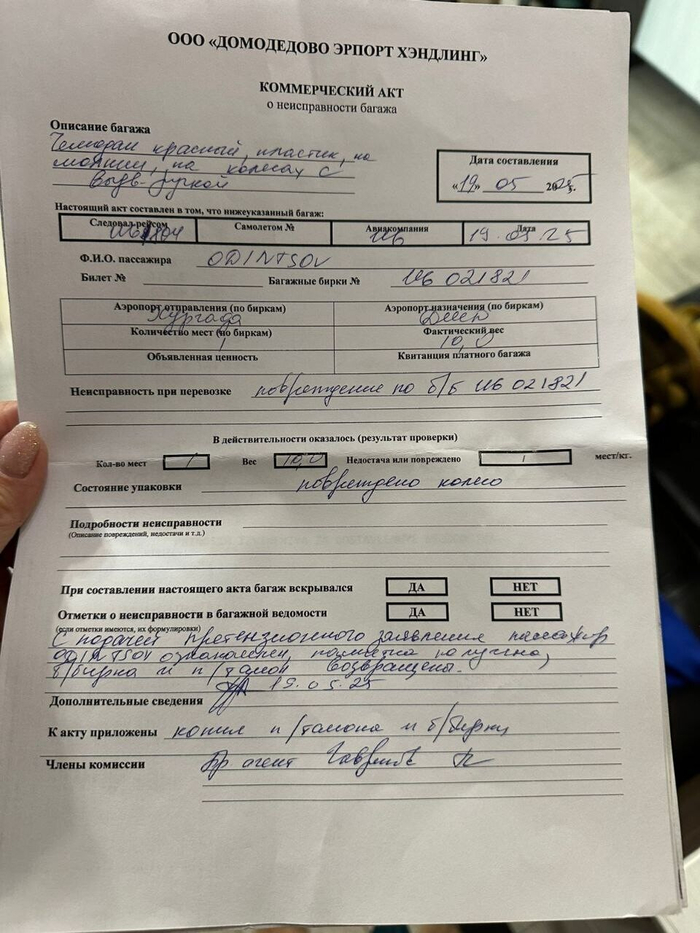 ООО «ДОМОДЕДОВО ЭРПОРТ ХЭНДЛИНГ»
КОММЕРЧЕСКИЙ АКТ
о неисправности багажа
Описание багажа
Чемодан красный, пластик, на
молнии, на колесах с
выдв. ручкой
Дата составления
«19» 05 2025г.
Настоящий акт составлен в том, что нижеуказанный багаж:
Следовал рейсом Самолетом № Авиакомпания Дата
U6 U6 19.05.25
Ф.И.О. пассажира ODINTSOV
Билет № Багажные бирки № U6 021821
Аэропорт отправления (по биркам) Аэропорт назначения (по биркам)
Хургада
Количество мест (по биркам) Фактический вес
1 10,0
Объявленная ценность Квитанция платного багажа
Неисправность при перевозке повреждение по б/б U6 021821
В действительности оказалось (результат проверки)
Кол-во мест 1 Вес 10,0 Недостача или повреждено 1 мест/кг.
Состояние упаковки повреждено колесо
Подробности неисправности
(Описание повреждений, недостачи и т.д.)
При составлении настоящего акта багаж вскрывался ДА НЕТ
Отметки о неисправности в багажной ведомости ДА НЕТ
(если отметки имеются, их формулировки)
С подачей претензионного заявления пассажир
ODINTSOV ознакомлен, памятка получена,
б/бирка и п/талон возвращены.
19.05.25
Дополнительные сведения
К акту приложены копия п/талона и б/бирки
Члены комиссии агент